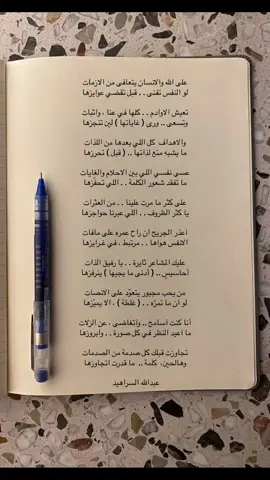 على الله والانسان يتعافى من الازمات
لو النفس تفنى . . قبل تقضي عوايزها
تعيش الاوادم . . كلها في عنا ، واثبات
وتسعى .. ورى ( غاياتها ) لين تنجزها
والاهداف كل اللي بعدها من اللذات
ما يشبه متع لذاتها .. ( قبل ) تحرزها
عسى نفسي اللي بين الاحلام والغايات
ما تفقد شعور الكلمة .. اللي تحفزها
على كثر ما مرت علينا . . من العثرات
يا كثر الظروف .. اللي عبرنا حواجزها
اعذر الجريح ان راح عمره على مافات
الانفس هواها .. مرتبط ، في غرايزها
عليك المشاعر ثايرة .. يا رفيق الذات
أحاسيس .. ( أدنى ما يجيها ) ينرفزها
من يحب مجبور يتعود على الانصات
لو ان ما تمره .. ( غلطة ) ، الا يميزها
أنا كنت اسامح .. واتغاضى ، عن الزلات
ما اعيد النظر في كل صورة .. وابروزها
تجاوزت قبلك كل صدمة من الصدمات
وهالحين، كلمة .. ما قدرت اتجاوزها
عبدالله السراهيد